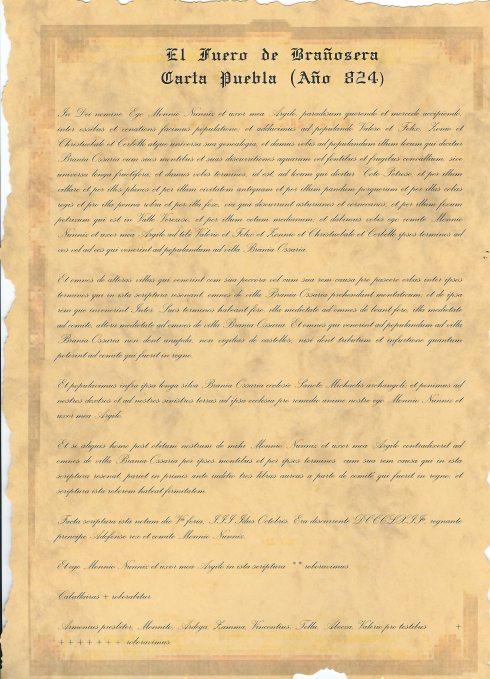 El Fuero de Brañosera
Carta Puebla (Año 824)
In Dei nomine Ego Monnio Nunniz et uxor mea Argilo, paradisum querendo et mercede accipiendo,
inter ossibus et venations facimus populatione, et adducimus ad populando Valero et Felix, Zonio et
Christuebalo et Cerbello atque universa sua genealogia, et damus vobis ad populandum illum locum qui dicitur
Brania Ossaria cum suos montibus et suas discurritiones aquarum vel fontibus et frugibus convallium, sive
universa longa fructifera, et damus vobis terminos, id est, ad locum qui dicitur Coto Petroso, et per illum
villare et per illos planos et per illum civitatem antiquam et per illum pandum porquerum et per illas cobas
regis et pro illa penna robia et per illa foze, via qua discurrunt asturianos et cornecanos, et per illum fixum
petrizum qui est in Valle Verezoso, et per illum cotum medianum, et dabimus vobis ego comite Monnio
Nunniz et uxor mea Argilo ad tibi Valerio et Felix et Zonnio et Christuebalo et Cerbello ipsos terminos ad
vos vel ad eos qui venerint ad populandum ad villa Brania Ossaria.
Et omnes de alteras villas qui venerint cum sua peccora vel cum sua rem causa pro pascere erbas inter ipsos
terminos qui in ista scriptura resonant, omnes de villa Brania Ossaria prehendant montaticum, et de ipsa
rem que invenerint Inter Suos terminos habeant foro, illa medietate ad omnes de beant foro, illa medietate
ad comite, altera medietate ad omnes de villa Brania Ossaria. Et omnes qui venerint ad populandum ad villa
Brania Ossaria non dent anupda, non vigilias de castellos, nisi dent tributum et infurtione quantum
poterint ad comite qui fuerit in regno.
Et populavimus infra ipsa longa silva Brania Ossaria ecclesie Sancte Michaelis archangeli, et ponimus ad
nostros dextros et ad nostros sinistros terras ad ipsa ecclesia pro remedio anime nostre ego Monnio Nunniz et
uxor mea Argilo.
Et si aliquis homo post obitum nostrum de mihi Monnio Nunniz et uxor mea Argilo contradixerit ad
omnes de villa Brania Ossaria per ipsos montibus et per ipsos terminos cum sua rem causa qui in ista
scriptura resonat, pariet in primis ante iuditio tres libras aureas a parte de comite qui fuerit in regno, et
scriptura ista roborem habeat firmitatem.
Facta scriptura ista notum die Vª feria, III Idus Octobris, Era discurrente DCCCLXIIª, regnante
principe Adefonso rex et comite Monnio Nunniz.
Et ego Monnio Nunniz et uxor mea Argilo in ista scriptura ** roboravimus
roborabitur
Armonius presbiter, Monnito, Ardega, Zamma, Vincentius, Tellu, Abecza, Valerio pro testibus +
+ + + + + + + roboravimus